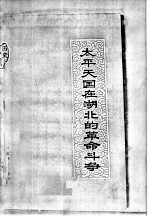 太平天国在湖北的革命斗争